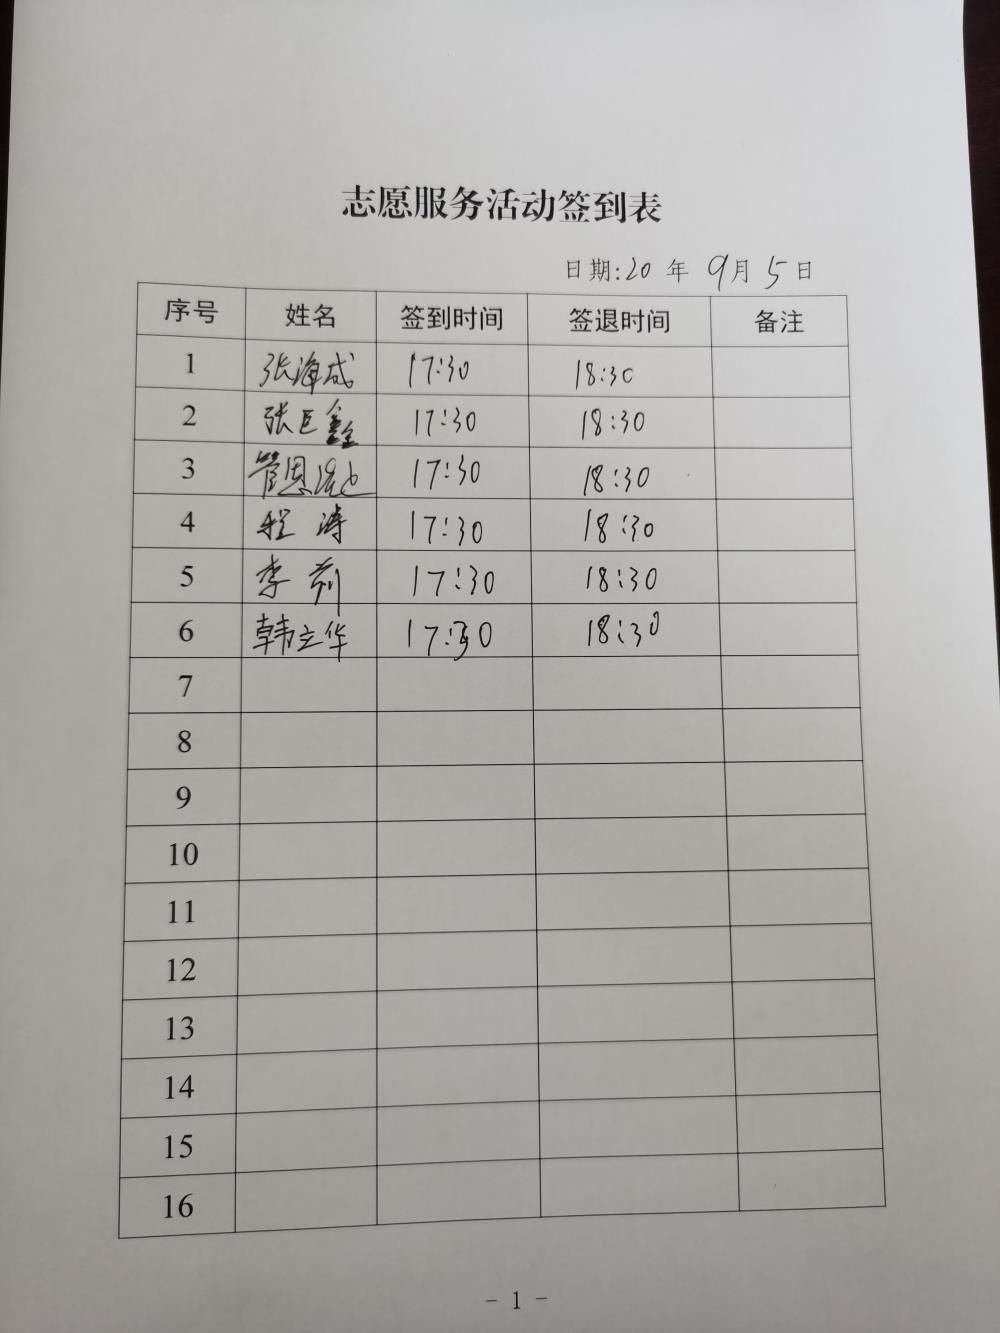 志愿服务活动签到表
日期:20 年 9月 5日
序号 姓名 签到时间 签退时间 备注
1 张海成 17:30 18:30
2 张巨鑫 17:30 18:30
3 管恩 17:30 18:30
4 程涛 17:30 18:30
5 李 17:30 18:30
6 韩立华 17:30 18:30
7
8
9
10
11
12
13
14
15
16
- 1 -